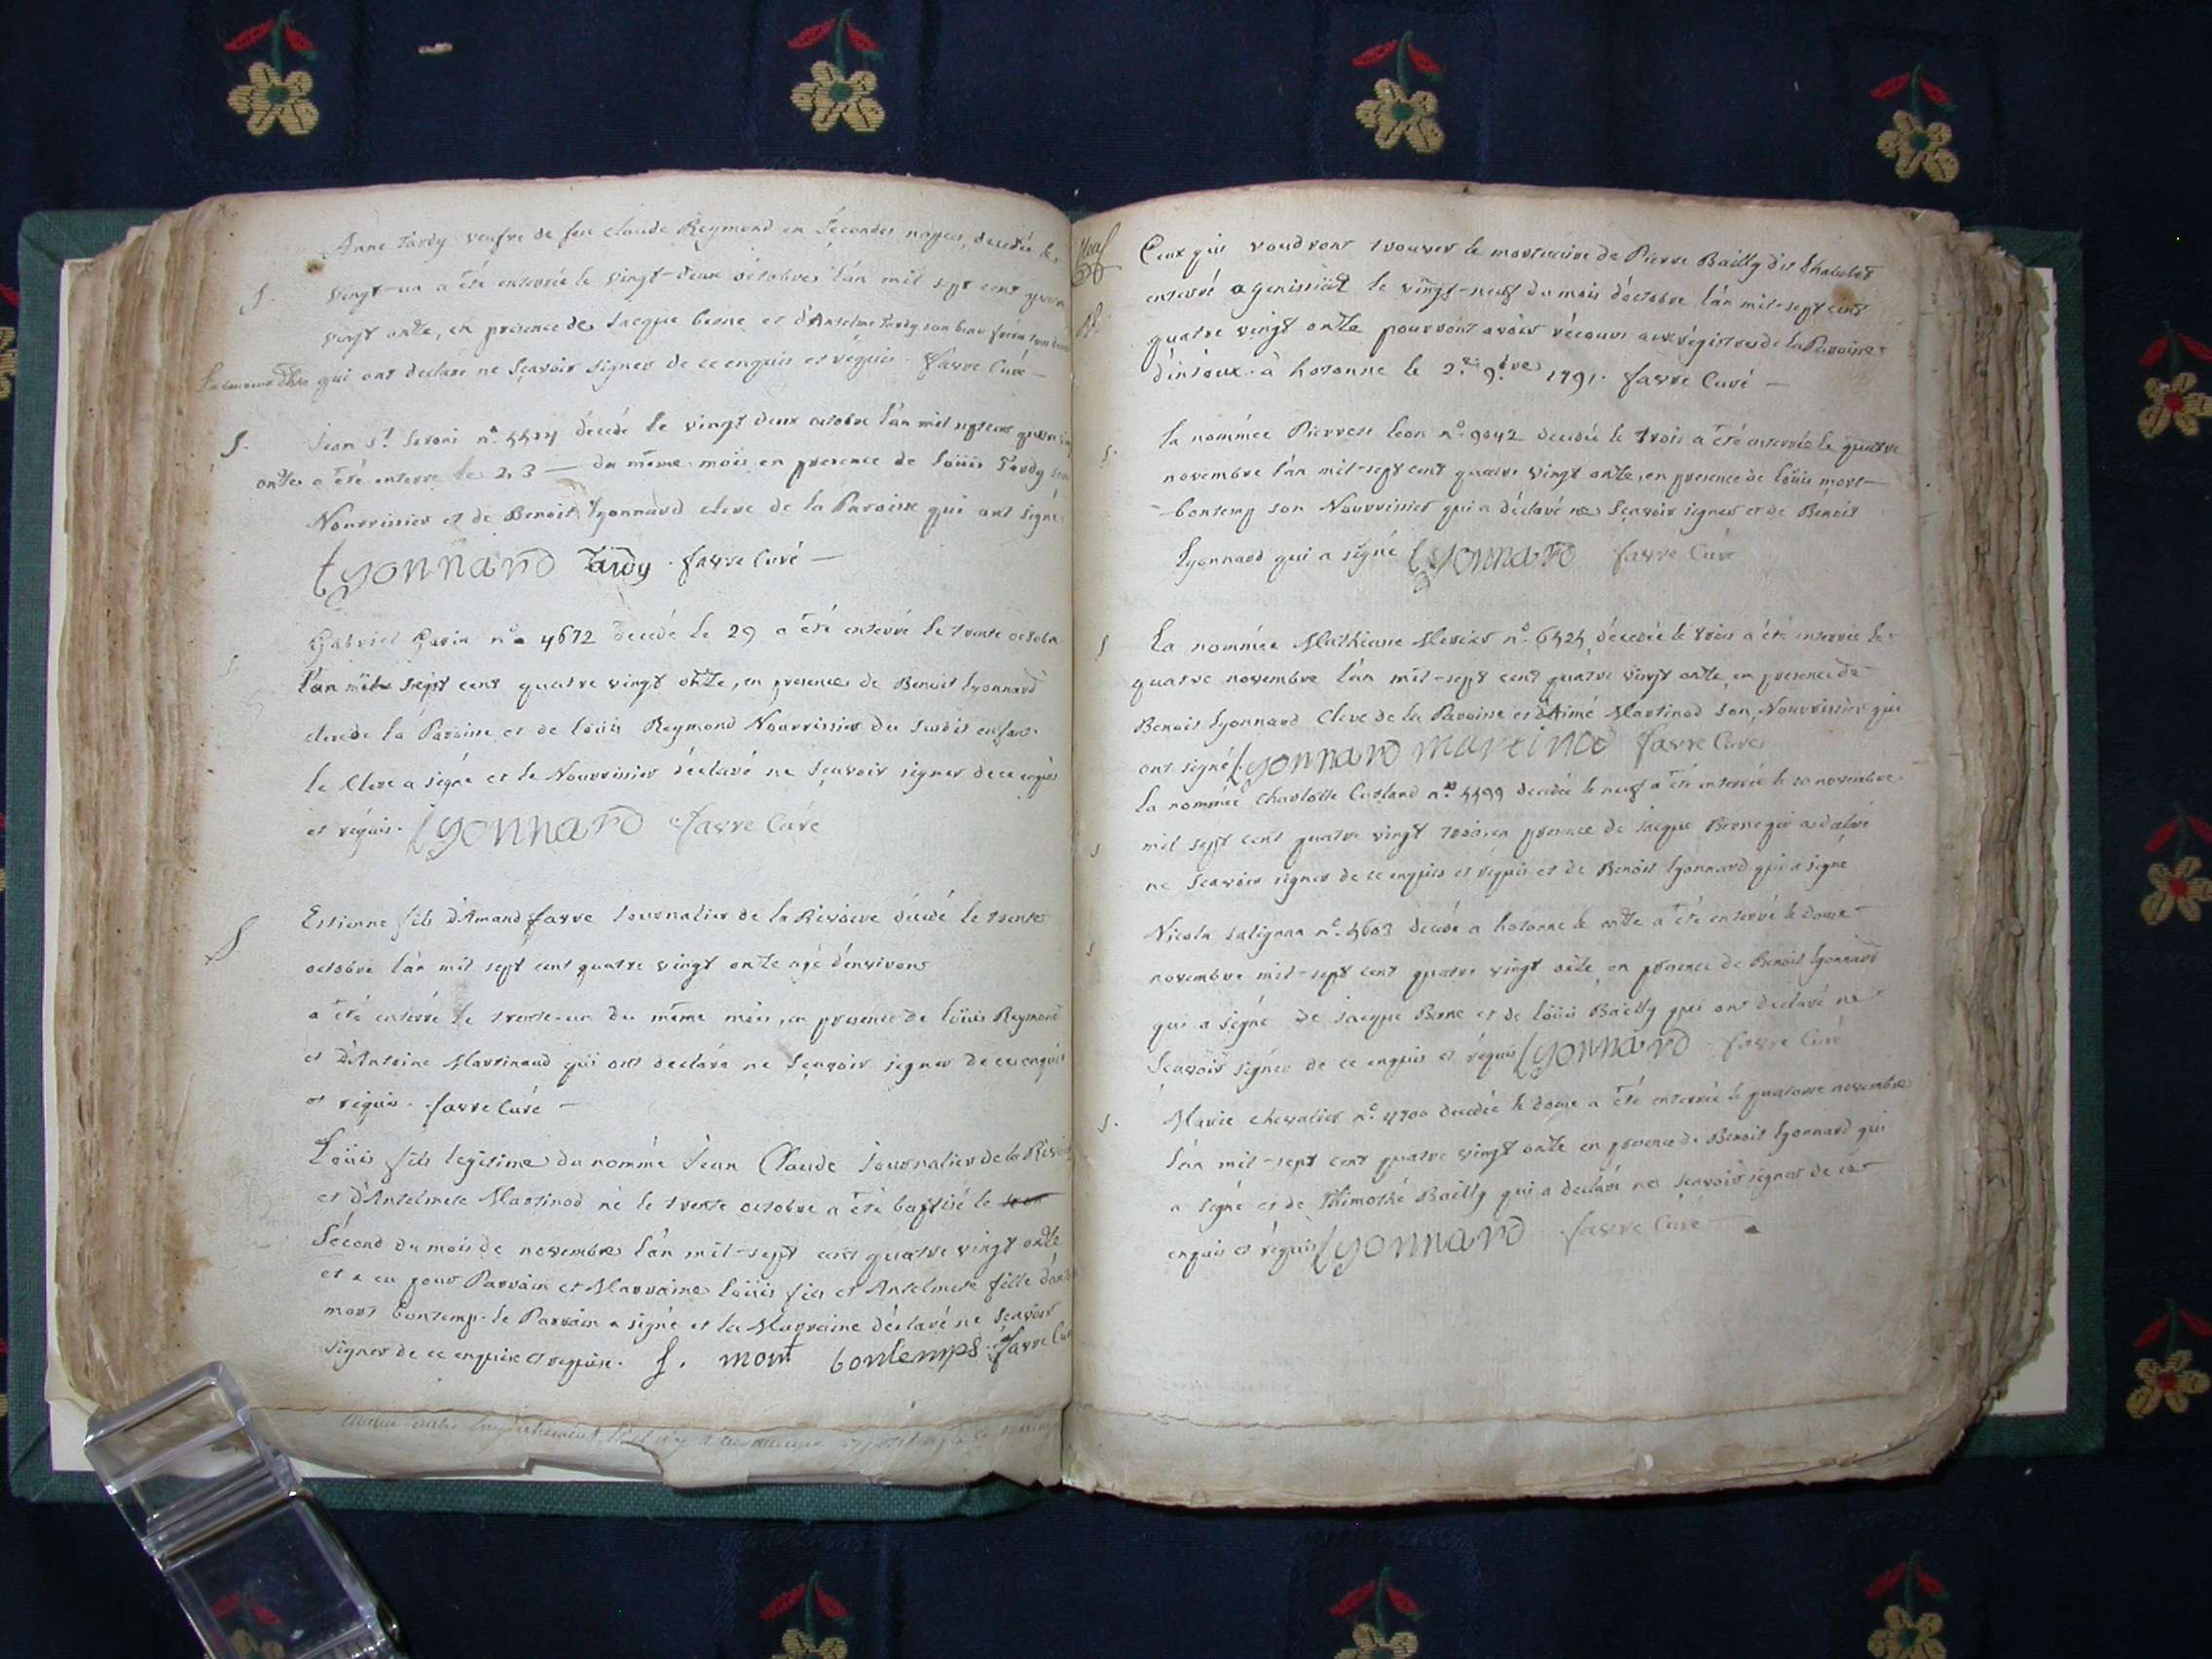 Anne Tardy veufve de feu claude Reymond en secondes noges, decedée le
S. vingt-un a été enterrée le vingt-deux octobre l'an mil sept cent quatre
vingt onze, en présence de Jacque berne et d'Anselme Tardy son beau frere
qui ont declaré ne sçavoir signer de ce enquis et réquis. favre Curé
S. Jean St. decedé le vingt deux octobre l'an mil sept cent quatre
onze a été enterre le 23 du même mois en presence de Loüis Tardy son
Nourrissier et de Benoit Lyonnard clerc de la Paroisse qui ont signé
Lyonnard Tardy favre Curé
Gabriel Gavin n.o 4672 decedé le 29 a été enterré le trente octobre
l'an mil sept cent quatre vingt onze, en presence de Benoit Lyonnard
clerc de la Paroisse et de Loüis Reymond Nourrissier du susdit enfant.
le Clerc a signé et le Nourrissier déclaré ne sçavoir signer de ce enquis
et réquis. Lyonnard favre Curé
S Estienne fils d'Amand favre journalier de la Rivoire décédé le trente
octobre l'an mil sept cent quatre vingt onze agé d'environ
a été enterré le trente-un du même mois, en presence de Loüis Reymond
et d'Antoine Martinaud qui ont declaré ne sçavoir signer de ce enquis
et réquis. favre Curé
Loüis fils legitime du nommé Jean Claude journalier de la
et d'Antelmete Martinod né le trente octobre a été baptisé le
second du mois de novembre l'an mil-sept cent quatre vingt onze
et a eu pour Parrain et Marraine Loüis fils et Antelmete fille
mont bontemp. le Parrain a signé et la Marraine déclaré ne sçavoir
signer de ce enquise et requise. L. mont bontemps favre Curé
Ceux qui voudront trouver le mortuaire de Pierre Bailly dit
enterré a genissiat le vingt-neuf du mois d'octobre l'an mil-sept cent
quatre vingt onze pourront avoir récours aux régistres de la Paroisse
d'injoux. à hotonne le 2. 9.bre 1791. favre Curé
S. La nommée Pierrete leon n.o 9042 decedée le trois a été enterrée le quatre
novembre l'an mil-sept cent quatre vingt onze, en presence de Loüis mont-
-bontemp son Nourrissier qui a déclaré ne sçavoir signer et de Benoit
Lyonnard qui a signé Lyonnard favre Curé
S La nommée Mathiane decedée le trois a été enterrée le
quatre novembre l'an mil-sept cent quatre vingt onze, en presence de
Benoit Lyonnard Clerc de la Paroisse et d'Aimé Martinod son Nourrissier qui
ont signé Lyonnard martinod favre Curé
La nommée Charlotte decedée le neuf a été enterrée le 10 novembre
S mil sept cent quatre vingt en presence de jacque Berne qui a déclaré
ne sçavoir signer de ce enquis et réquis et de Benoit Lyonnard qui a signé
S Nicola salignan n.o 4603 decedé a hotonne le onze a été enterré le douze
novembre mil-sept cent quatre vingt onze, en presence de Benoit Lyonnard
qui a signé de jacque Berne et de Loüis Bailly qui ont declaré ne
sçavoir signer de ce enquis et réquis Lyonnard favre Curé
S. Marie chevalier n.o 4700 decedée le douze a été enterrée le quatorze novembre
l'an mil-sept cent quatre vingt onze en presence de Benoit Lyonnard qui
a signé et de Thimothé Bailly qui a declaré ne sçavoir signer de ce
enquis et réquis Lyonnard favre Curé